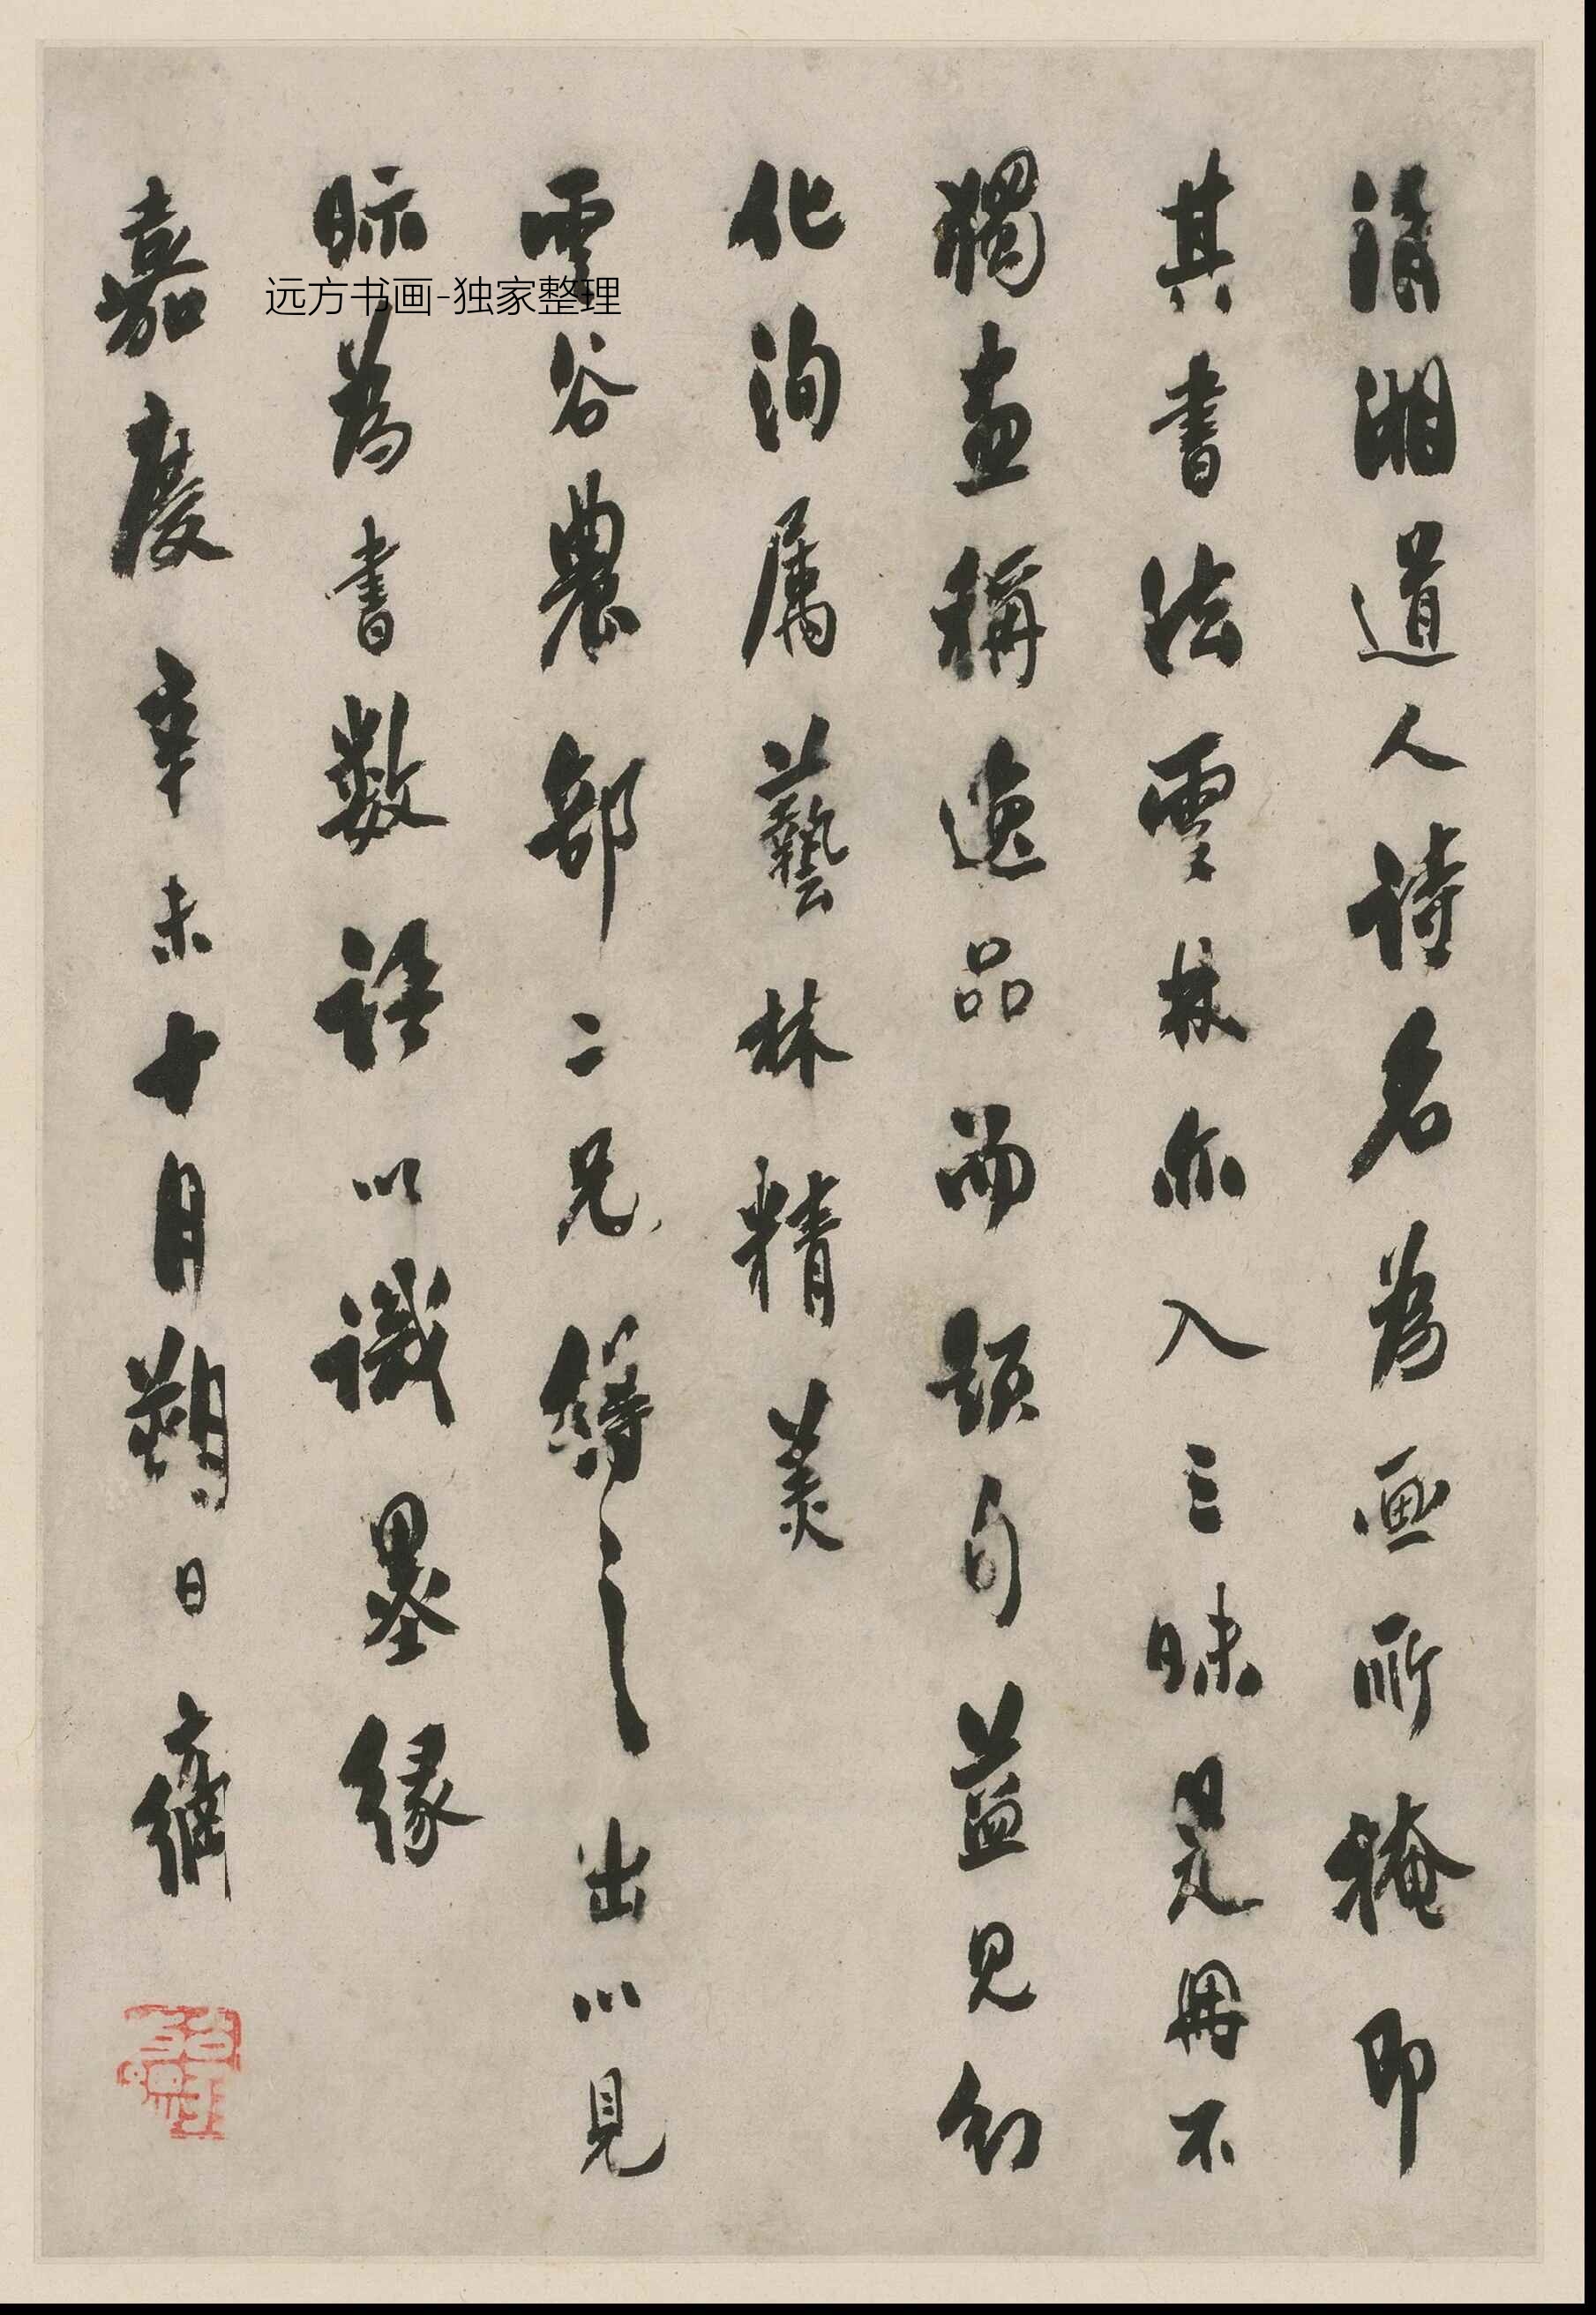 清湘道人詩名為画所掩即
其書法雲林亦入三昧是冊不
獨畫稱逸品而題句益見幻
化洵屬藝林精美
雲谷農部二兄之出以見
眎為書數語以識墨緣
嘉慶辛未十月朔日
远方书画-独家整理